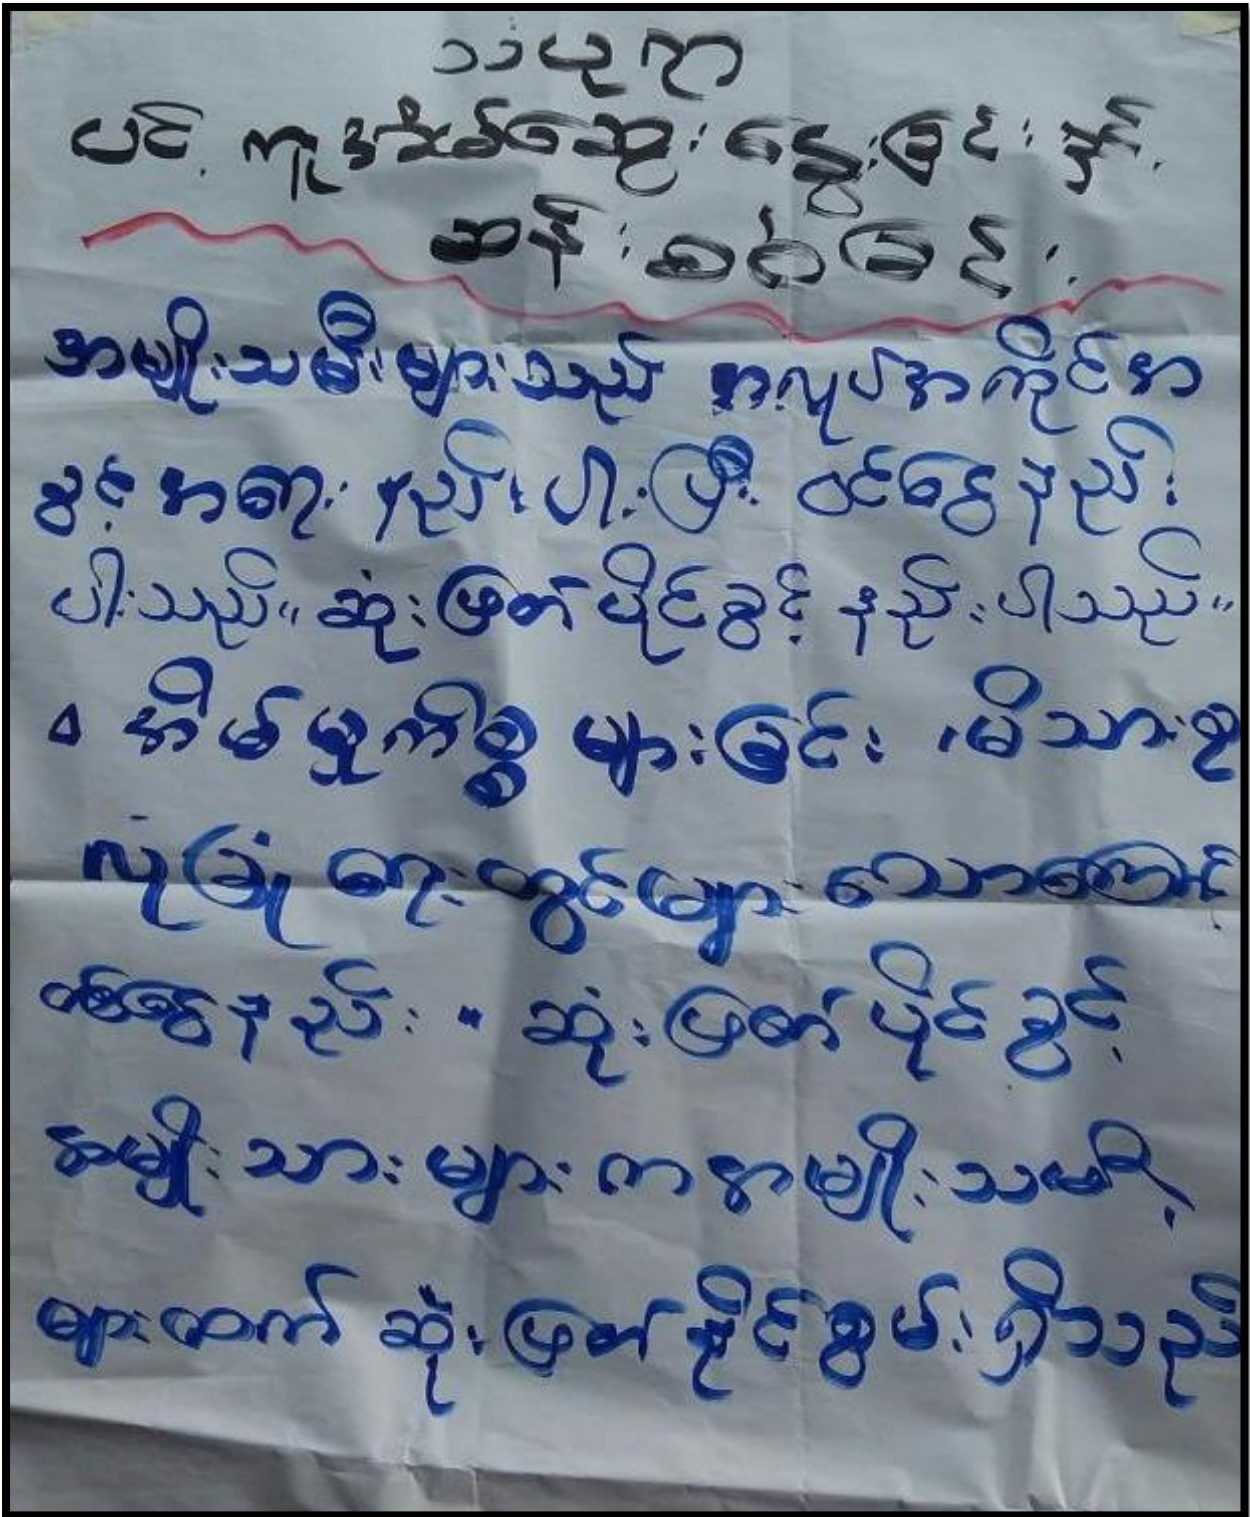 သံယုရာ
ပင့်ကူအိမ်ဆွေးနွေးခြင်းနှင့်
ဆန်းစစ်ခြင်း
အမျိုးသမီးများသည် အလုပ်အကိုင်အ
ခွင့်အရေး နည်းပါးပြီး ဝင်ငွေနည်း
ပါးသည်။ ဆုံးဖြတ်ပိုင်ခွင့် နည်းပါသည်။
အိမ်မှုကိစ္စ များခြင်း ၊ မိသားစု
လုံခြုံရေးတွင်များသောကြောင့်
ဝင်ငွေနည်း ။ ဆုံးဖြတ်ပိုင်ခွင့်
အမျိုးသားများက အမျိုးသမီး
များထက် ဆုံးဖြတ်နိုင်စွမ်းရှိသည်